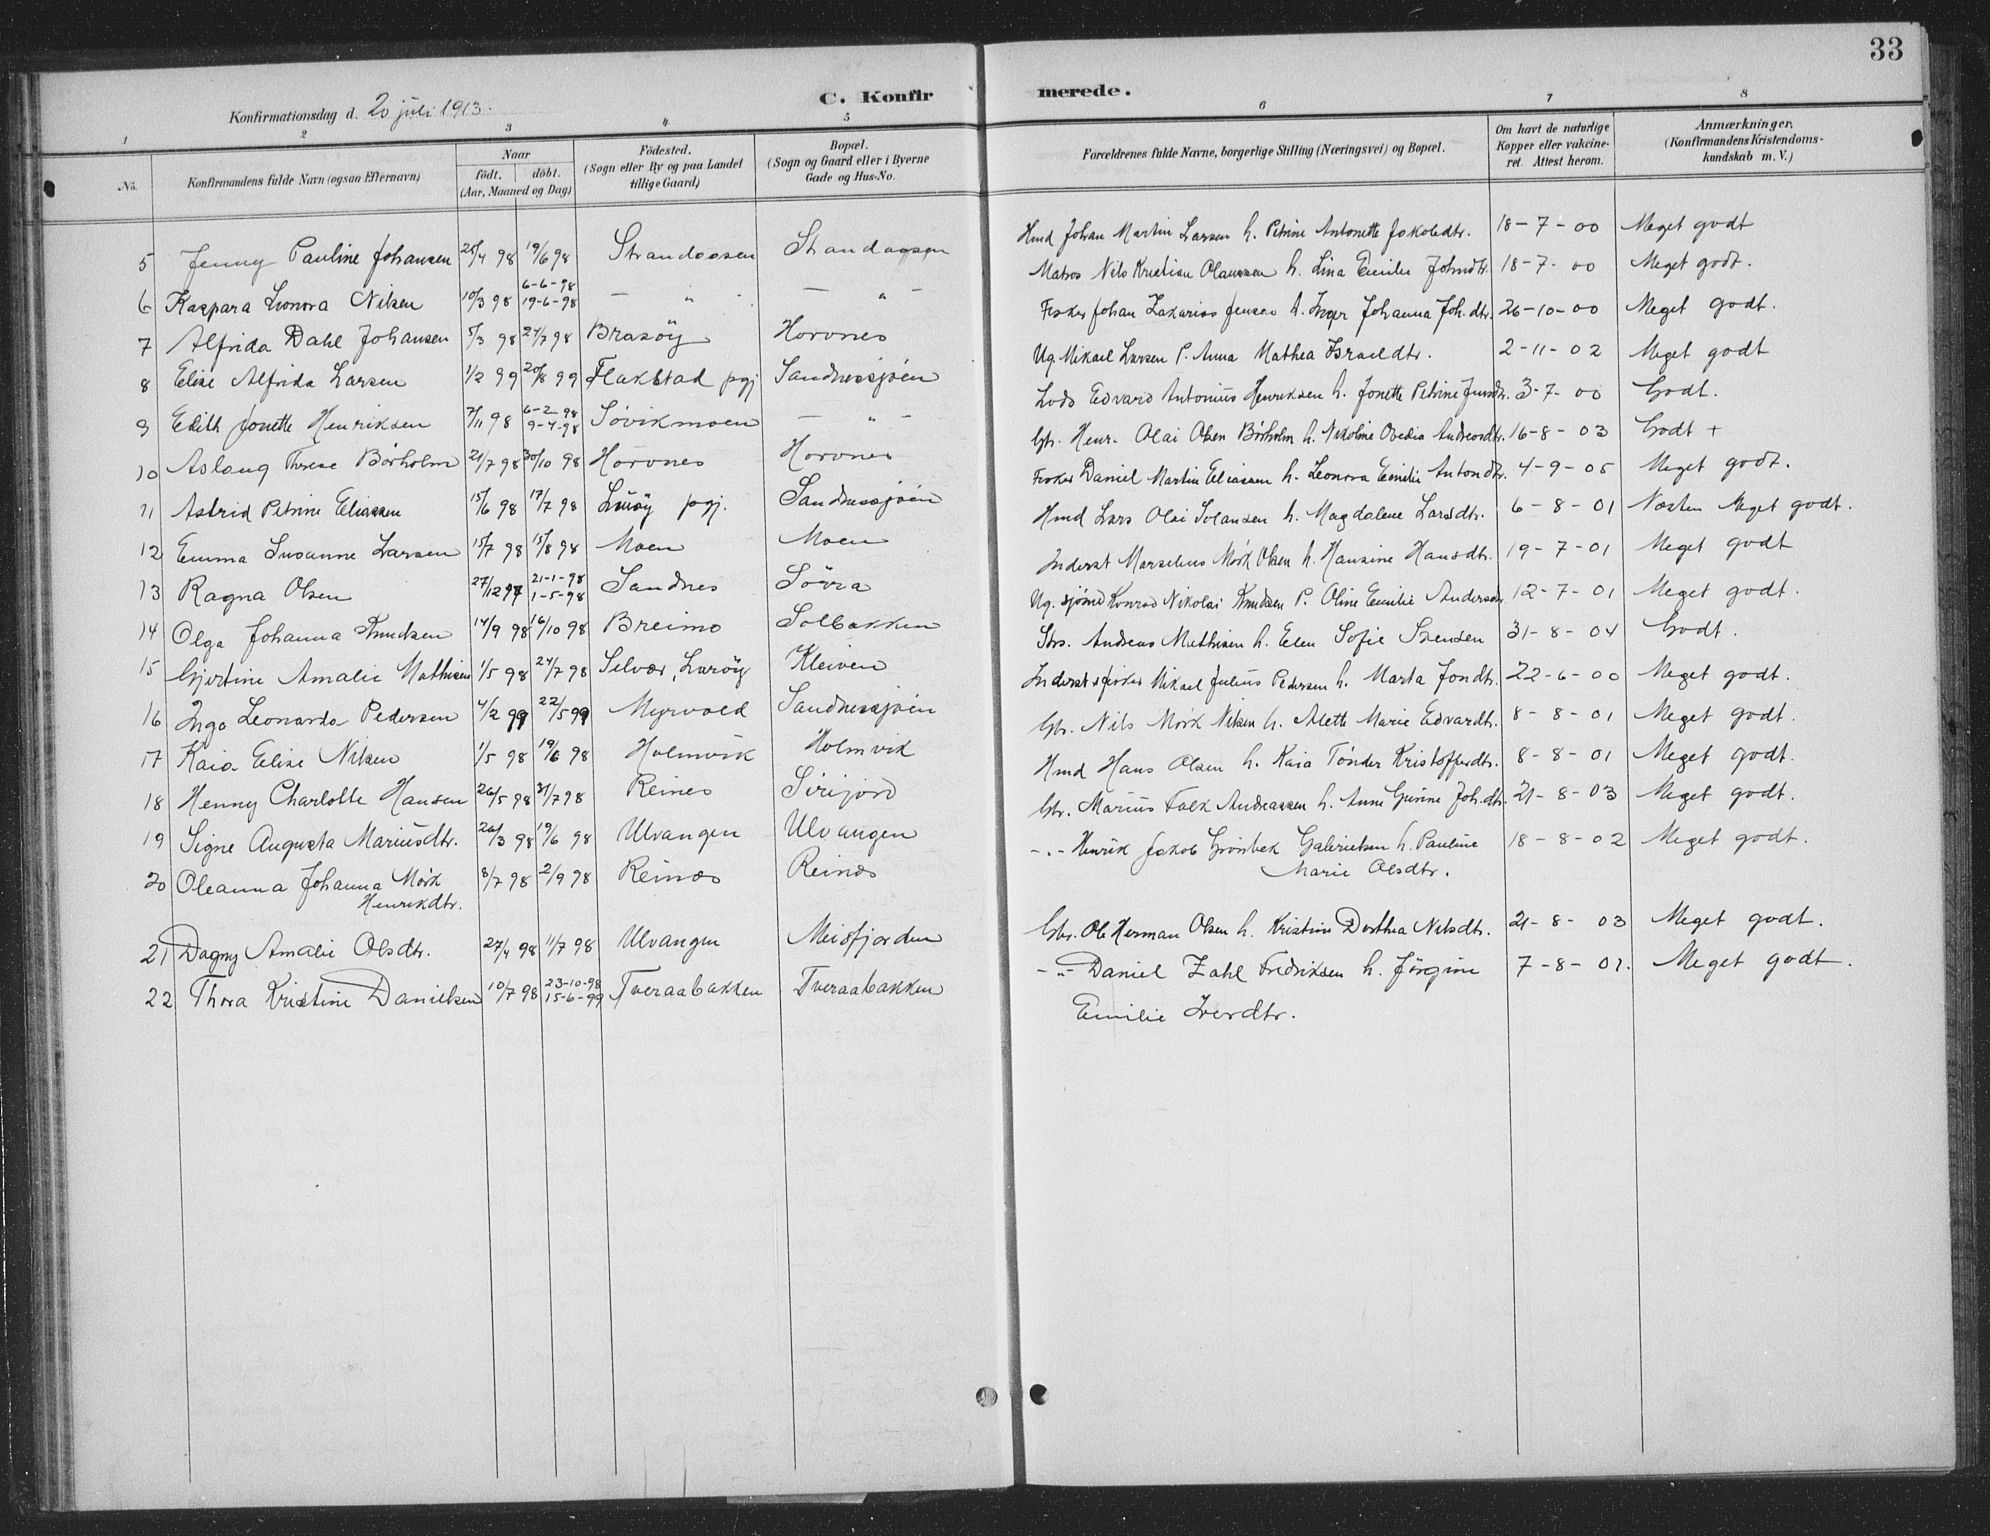 33
C. Konfirmerede.
Konfirmationsdag d. 20 juli 1913.
1 2 3 4 5 6 7 8
No. Konfirmandens fulde Navn (ogsaa Efternavn) Naar födt. döbt. (Aar, Maaned og Dag) Födested. (Sogn eller By og paa Landet tillige Gaard) Bopæl. (Sogn og Gaard eller i Byerne Gade og Hus-No. Forældrenes fulde Navne, borgerlige Stilling (Næringsvei) og Bopæl. Om havt de naturlige Kopper eller vakcineret. Attest herom. Anmærkninger. (Konfirmandens Kristendomskundskab m. V.)
5 Jenny Pauline Johansen 25/4 98 19/6 98 Strandaasen Strandaasen Hmd Johan Martin Larsen h. Petrine Antonette Jakobdtr. 18-7-00 Meget godt
6 Kaspara Leonora Nilsen 10/3 98 6-6-98 19-6-98 — " — — " — Matros Nils Kristian Olaussen h. Lina Emilie Johndtr. 18-7-00 Meget godt.
7 Alfrida Dahl Johansen 5/3 98 24/7 98 Brasöy Horvnes Fisker Johan Zakarias Jensen h. Inger Johanna Joh.dtr. 26-10-00 Meget godt.
8 Elise Alfrida Larsen 1/2 99 20/8 99 Flakstad pgj Sandnessjøen Ug. Mikael Larsen P. Anna Mathea Israeldtr. 2-11-02 Meget godt
9 Edith Jonette Henriksen 7/11 98 6-2-98 9-4-98 Søvikmoen — " — Lods Edvard Antonius Henriksen h. Jonette Petrine Jensdtr. 3-7-00 Godt.
10 Aslaug Therese Børholm 21/7 98 30/10 98 Horvnes Horvnes Gbr. Henr. Olai Olsen Børholm h. Nikoline Ovedia Andreasdtr. 16-8-03 Godt +
11 Astrid Petrine Eliassen 15/6 98 17/7 98 Lurøy pgj. Sandnessjøen Fisker Daniel Martin Eliassen h. Leonora Emilie Antondtr. 4-9-05 Meget godt.
12 Emma Susanne Larsen 15/7 98 15/8 98 Moen Moen Hmd Lars Olai Johansen h. Magdalene Larsdtr. 6-8-01 Næsten Meget godt.
13 Ragna Olsen 27/12 97 21-1-98 1-5-98 Sandnes Søvra Inderst Marselius Mørk Olsen h. Hansine Hansdtr. 19-7-01 Meget godt
14 Olga Johanna Knudsen 14/9 98 16/10 98 Breimo Solbakken Ug. sjømd Konrad Nikolai Knudsen P. Oline Emilie Andersdtr. 12-7-01 Meget godt.
15 Gjertine Amalie Mathisen 1/5 98 24/7 98 Selvær, Lurøy Kleiven Strs. Andreas Mathisen h. Elen Sofie Svensen 31-8-04 Godt.
16 Inga Leonarda Pedersen 4/2 99 22/5 99 Myrvold Sandnessjøen Inderst & fisker Mikael Julius Pedersen h. Marta Jondtr. 22-6-00 Meget godt.
17 Kaia Elise Nilsen 1/5 98 19/6 98 Holmvik Holmvik Gbr. Nils Mørk Nilsen h. Alette Marie Edvardtr. 8-8-01 Meget godt.
18 Henny Charlotte Hansen 26/5 98 31/7 98 Reines Sirijord Hmd Hans Olsen h. Kaia Tønder Kristofferdtr. 8-8-01 Meget godt.
19 Signe Augusta Mariusdtr. 26/3 98 19/6 98 Ulvangen Ulvangen Gbr. Marius Falk Andreassen h. Anne Gurine Joh.dtr. 21-8-03 Meget godt.
20 Oleanna Johanna Mørk 8/7 98 2/9 98 Reines Reines — " — Henrik Jakob Grønbek Gabrielsen h. Pauline 18-8-02 Meget godt.
Henrikdtr. Marie Olsdtr.
21 Dagny Amalie Olsdtr. 27/4 98 11/7 98 Ulvangen Meisfjorden Gbr. Ole Herman Olsen h. Kristine Dorthea Nilsdtr. 21-8-03 Meget godt.
22 Thora Kristine Danielsen 10/7 98 23-10-98 15-6-99 Tveraabakken Tveraabakken — " — Daniel Zahl Fredriksen h. Jørgine 7-8-01. Meget godt.
Emilie Iverdtr.